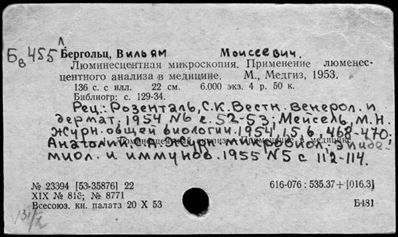 Бв455 Бергольц, Вильям Моисеевич.
Люминесцентная микроскопия. Применение люменес-
центного анализа в медицине. М., Медгиз, 1953.
136 с. с илл. 22 см. 6.000 экз. 4 р. 50 к.
Библиогр: с. 129-34.
Рец.: Розенталь, С.К. Вестн. венерол. и
дермат. 1954 №6 с. 52-53; Мейсель, М.Н.
Журн. общей биологии. 1954, 15, 6, 468-470.
Анатолий С.А. Журн. микробиол., эпиде-
миол. и иммуноб. 1955 №5 с 112-114.
№ 23394 [53-35876] 22 616-076 : 535.37 + [016.3]
XIX № 816; № 8771
Всесоюз. кн. палата 20 X 53 Б481